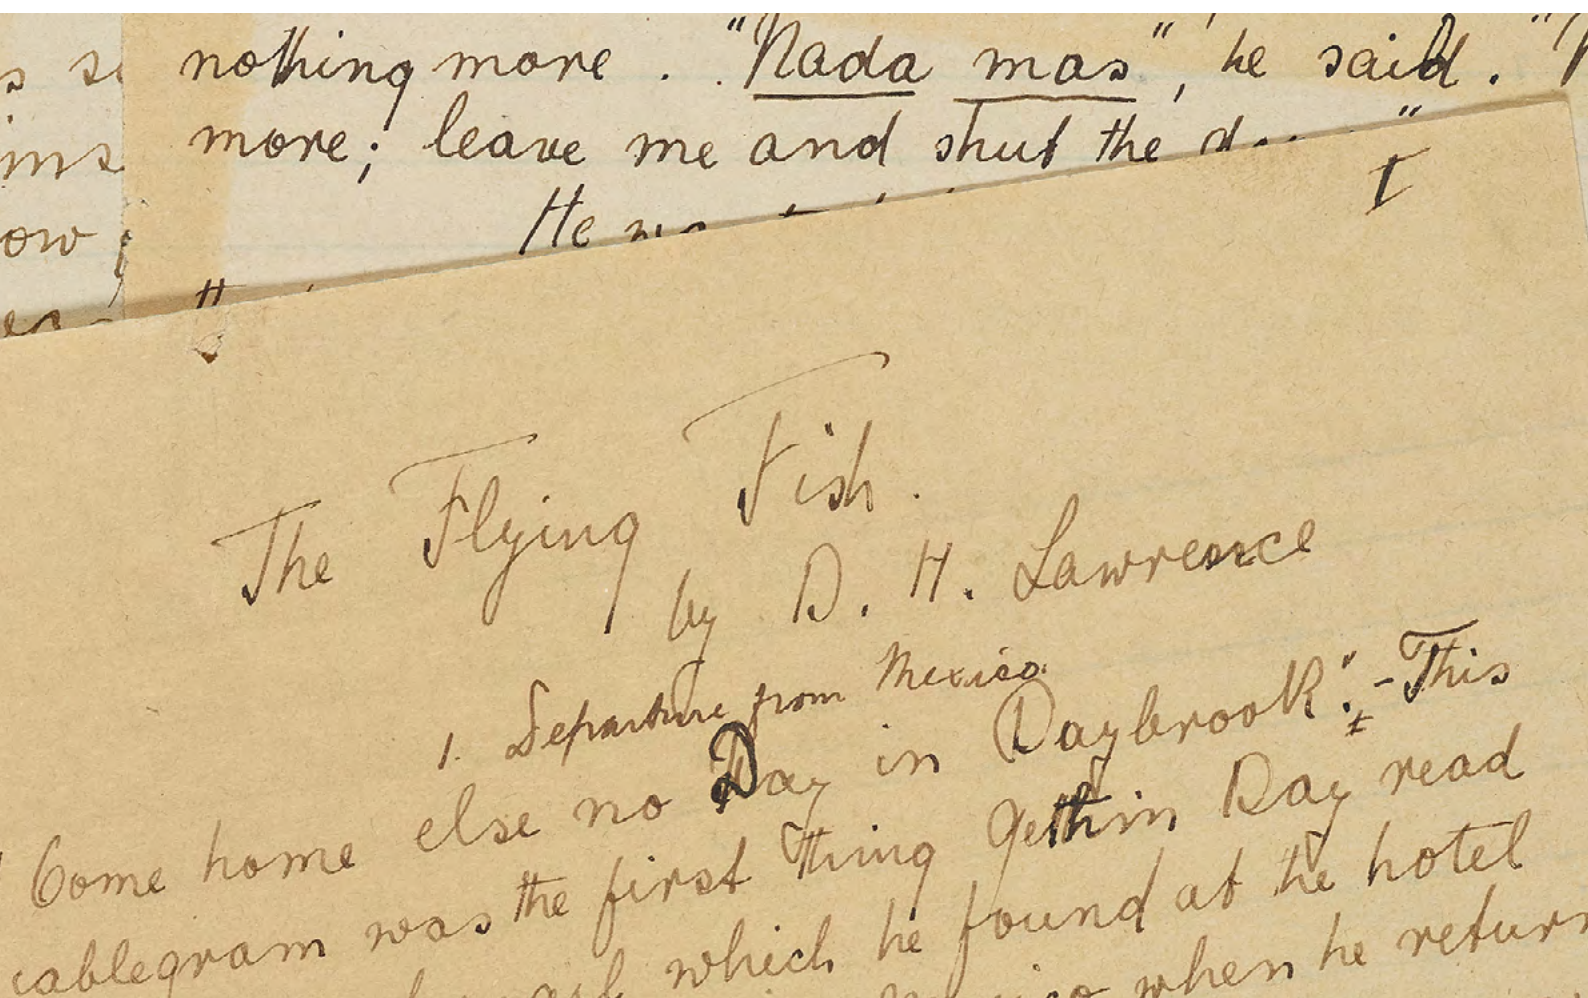 nothing more. "Nada mas", he said. "
more; leave me and shut the
He
I
The Flying Fish.
by D. H. Lawrence
1. Departure from Mexico.
"Come home else no Day in Daybrook". - This
cablegram was the first thing Gethin Day read
which he found at the hotel
when he return